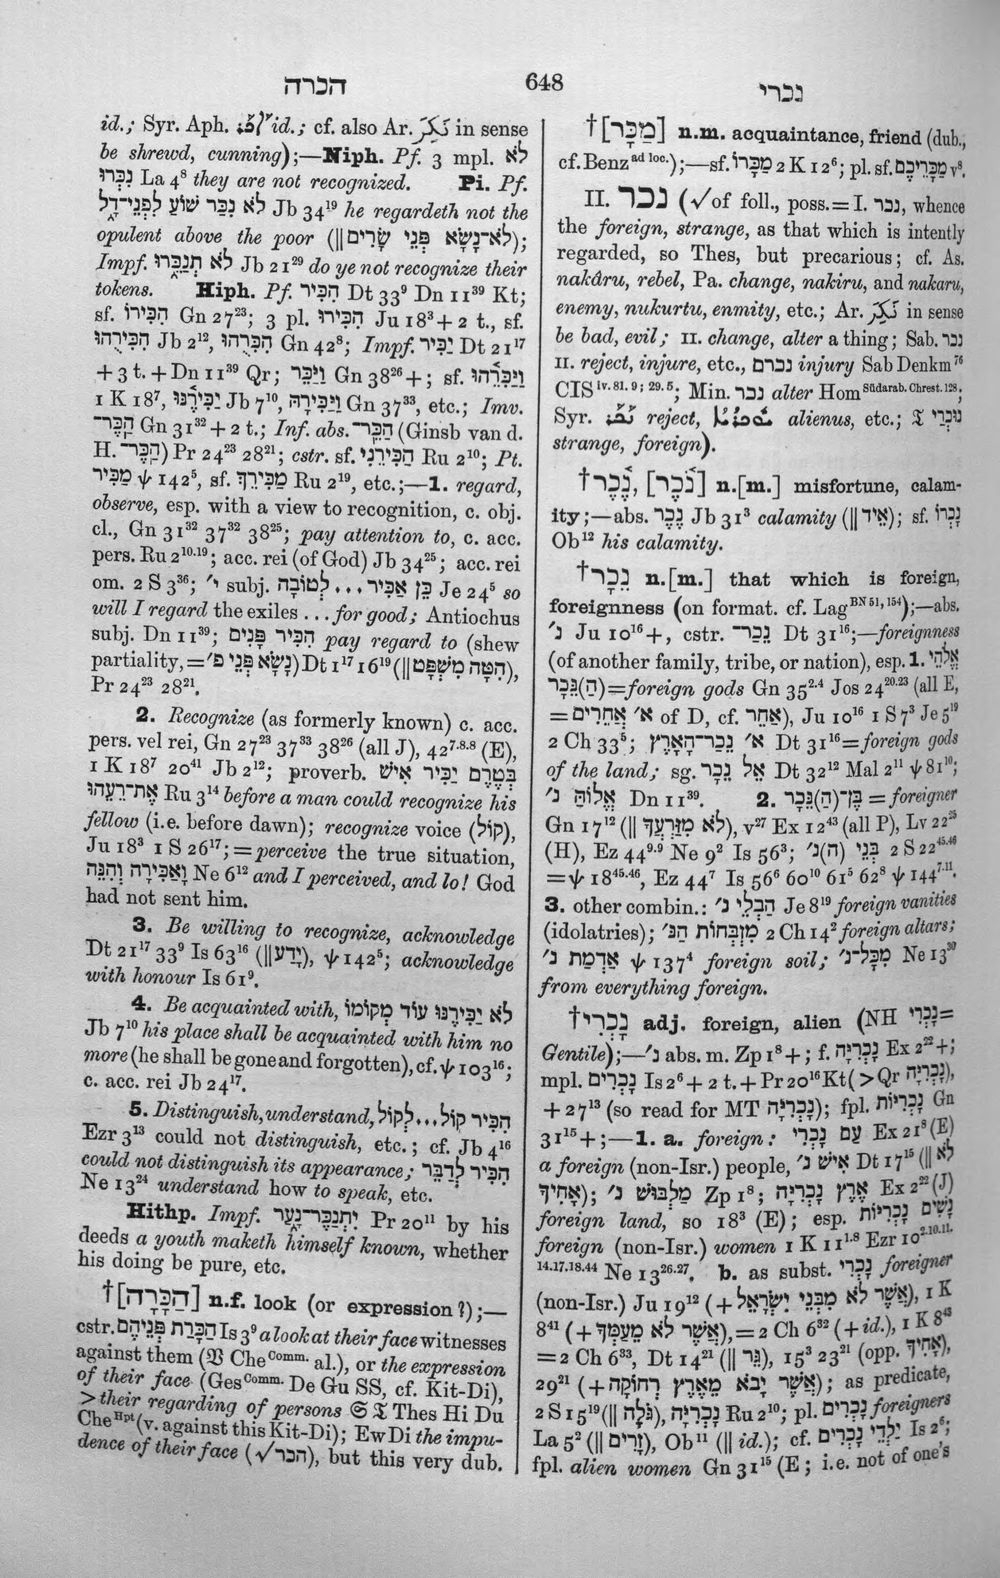 הכרה 648 נכרי
id.; Syr. Aph. id.; cf. also Ar. نَكُرَ in sense
be shrewd, cunning);—Niph. Pf. 3 mpl. לֹא
נִכְּרוּ La 4⁸ they are not recognized. Pi. Pf.
לֹא נִכַּר שׁוֹעַ לִפְנֵי־דָל Jb 34¹⁹ he regardeth not the
opulent above the poor (‖ לֹא־נָשָׂא פְּנֵי שָׂרִים);
Impf. לֹא תְנַכֵּרוּ Jb 21²⁹ do ye not recognize their
tokens. Hiph. Pf. הִכִּיר Dt 33⁹ Dn 11³⁹ Kt;
sf. הִכִּירוֹ Gn 27²³; 3 pl. הִכִּירוּ Ju 18³ + 2 t., sf.
הִכִּירֻהוּ Jb 2¹², הִכִּרֻהוּ Gn 42⁸; Impf. יַכִּיר Dt 21¹⁷
+ 3 t. + Dn 11³⁹ Qr; וַיַּכֵּר Gn 38²⁶ +; sf. וַיַּכִּרֵהוּ
1 K 18⁷, יַכִּירֶנּוּ Jb 7¹⁰, וַיַּכִּירָהּ Gn 37³³, etc.; Imv.
הַכֶּר־ Gn 31³² + 2 t.; Inf. abs. הַכֵּר־ (Ginsb van d.
H. הַכֶּר־) Pr 24²³ 28²¹; cstr. sf. הַכִּירֵנִי Ru 2¹⁰; Pt.
מַכִּיר ψ 142⁵, sf. מַכִּירֵךְ Ru 2¹⁹, etc.;—1. regard,
observe, esp. with a view to recognition, c. obj.
cl., Gn 31³² 37³² 38²⁵; pay attention to, c. acc.
pers. Ru 2¹⁰·¹⁹; acc. rei (of God) Jb 34²⁵; acc. rei
om. 2 S 3³⁶; י׳ subj. כֵּן אַכִּיר ... לְטוֹבָה Je 24⁵ so
will I regard the exiles ... for good; Antiochus
subj. Dn 11³⁹; הִכִּיר פָּנִים pay regard to (shew
partiality, = נָשָׂא פְּנֵי פ׳) Dt 1¹⁷ 16¹⁹ (‖ הִטָּה מִשְׁפָּט),
Pr 24²³ 28²¹.
2. Recognize (as formerly known) c. acc.
pers. vel rei, Gn 27²³ 37³³ 38²⁶ (all J), 42⁷·⁸·⁸ (E),
1 K 18⁷ 20⁴¹ Jb 2¹²; proverb. בְּטֶרֶם יַכִּיר אִישׁ
אֶת־רֵעֵהוּ Ru 3¹⁴ before a man could recognize his
fellow (i.e. before dawn); recognize voice (קוֹל),
Ju 18³ 1 S 26¹⁷; = perceive the true situation,
וָאַכִּירָה וְהִנֵּה Ne 6¹² and I perceived, and lo! God
had not sent him.
3. Be willing to recognize, acknowledge
Dt 21¹⁷ 33⁹ Is 63¹⁶ (‖ יָדַע), ψ 142⁵; acknowledge
with honour Is 61⁹.
4. Be acquainted with, לֹא יַכִּירֶנּוּ עוֹד מְקוֹמוֹ
Jb 7¹⁰ his place shall be acquainted with him no
more (he shall be gone and forgotten), cf. ψ 103¹⁶;
c. acc. rei Jb 24¹⁷.
5. Distinguish, understand, הִכִּיר קוֹל...לְקוֹל
Ezr 3¹³ could not distinguish, etc.; cf. Jb 4¹⁶
could not distinguish its appearance; הִכִּיר לְדַבֵּר
Ne 13²⁴ understand how to speak, etc.
Hithp. Impf. יִתְנַכֶּר־נָעַר Pr 20¹¹ by his
deeds a youth maketh himself known, whether
his doing be pure, etc.
†[הַכָּרָה] n.f. look (or expression?);—
cstr. הַכָּרַת פְּנֵיהֶם Is 3⁹ a look at their face witnesses
against them (𝔙 Che Comm. al.), or the expression
of their face (Ges Comm. De Gu SS, cf. Kit-Di),
> their regarding of persons 𝔊 𝔗 Thes Hi Du
Che Hpt (v. against this Kit-Di); Ew Di the impu-
dence of their face (√ הכר), but this very dub.
†[מַכָּר] n.m. acquaintance, friend (dub.,
cf. Benz ad loc.);—sf. מַכָּרוֹ 2 K 12⁶; pl. sf. מַכָּרֵיכֶם v⁸.
II. נכר (√ of foll., poss. = I. נכר, whence
the foreign, strange, as that which is intently
regarded, so Thes, but precarious; cf. As.
nakâru, rebel, Pa. change, nakiru, and nakaru,
enemy, nukurtu, enmity, etc.; Ar. نَكُرَ in sense
be bad, evil; II. change, alter a thing; Sab. נכר
II. reject, injure, etc., נכרם injury Sab Denkm ⁷⁶
CIS iv. 81. 9; 29. 5; Min. נכר alter Hom Südarab. Chrest. 128;
Syr. reject, alienus, etc.; 𝔗 נוּכְרַי
strange, foreign).
†נֶ֫כֶר, [נֹ֫כֶר] n.[m.] misfortune, calam-
ity;—abs. נֶכֶר Jb 31³ calamity (‖ אֵיד); sf. נָכְרוֹ
Ob¹² his calamity.
†נֵכָר n.[m.] that which is foreign,
foreignness (on format. cf. Lag BN 51, 154);—abs.
נ׳ Ju 10¹⁶ +, cstr. נֵכַר־ Dt 31¹⁶;—foreignness
(of another family, tribe, or nation), esp. 1. אֱלֹהֵי
(הַ)נֵּכָר = foreign gods Gn 35²·⁴ Jos 24²⁰·²³ (all E,
= א׳ אֲחֵרִים of D, cf. אַחֵר), Ju 10¹⁶ 1 S 7³ Je 5¹⁹
2 Ch 33⁵; א׳ נֵכַר־הָאָרֶץ Dt 31¹⁶ = foreign gods
of the land; sg. אֵל נֵכָר Dt 32¹² Mal 2¹¹ ψ 81¹⁰;
אֱלוֹהַּ נ׳ Dn 11³⁹. 2. בֶּן־(הַ)נֵּכָר = foreigner
Gn 17¹² (‖ לֹא מִזַּרְעֲךָ), v²⁷ Ex 12⁴³ (all P), Lv 22²⁵
(H), Ez 44⁹·⁹ Ne 9² Is 56³; בְּנֵי (הַ)נ׳ 2 S 22⁴⁵·⁴⁶
= ψ 18⁴⁵·⁴⁶, Ez 44⁷ Is 56⁶ 60¹⁰ 61⁵ 62⁸ ψ 144⁷·¹¹.
3. other combin.: הַבְלֵי נ׳ Je 8¹⁹ foreign vanities
(idolatries); מִזְבְּחוֹת הַנּ׳ 2 Ch 14² foreign altars;
אַדְמַת נ׳ ψ 137⁴ foreign soil; מִכָּל־נ׳ Ne 13³⁰
from everything foreign.
†נָכְרִי adj. foreign, alien (NH נָכְרִי =
Gentile);—נ׳ abs. m. Zp 1⁸ +; f. נָכְרִיָּה Ex 2²² +;
mpl. נָכְרִים Is 2⁶ + 2 t. + Pr 20¹⁶ Kt (> Qr נָכְרִיָּה),
+ 27¹³ (so read for MT נָכְרִיָּה); fpl. נָכְרִיּוֹת Gn
31¹⁵ +;—1. a. foreign: עַם נָכְרִי Ex 21⁸ (E)
a foreign (non-Isr.) people, אִישׁ נ׳ Dt 17¹⁵ (‖ לֹא
אָחִיךָ); מַלְבּוּשׁ נ׳ Zp 1⁸; אֶרֶץ נָכְרִיָּה Ex 2²² (J)
foreign land, so 18³ (E); esp. נָשִׁים נָכְרִיּוֹת
foreign (non-Isr.) women 1 K 11¹·⁸ Ezr 10²·¹⁰·¹¹·
¹⁴·¹⁷·¹⁸·⁴⁴ Ne 13²⁶·²⁷. b. as subst. נָכְרִי foreigner
(non-Isr.) Ju 19¹² (+ אֲשֶׁר לֹא מִבְּנֵי יִשְׂרָאֵל), 1 K
8⁴¹ (+ אֲשֶׁר לֹא מֵעַמְּךָ), = 2 Ch 6³² (+ id.), 1 K 8⁴³
= 2 Ch 6³³, Dt 14²¹ (‖ גֵּר), 15³ 23²¹ (opp. אָחִיךָ),
29²¹ (+ אֲשֶׁר יָבֹא מֵאֶרֶץ רְחוֹקָה); as predicate,
2 S 15¹⁹ (‖ גֹּלֶה), נָכְרִיָּה Ru 2¹⁰; pl. נָכְרִים foreigners
La 5² (‖ זָרִים), Ob¹¹ (‖ id.); cf. יַלְדֵי נָכְרִים Is 2⁶;
fpl. alien women Gn 31¹⁵ (E; i.e. not of one's